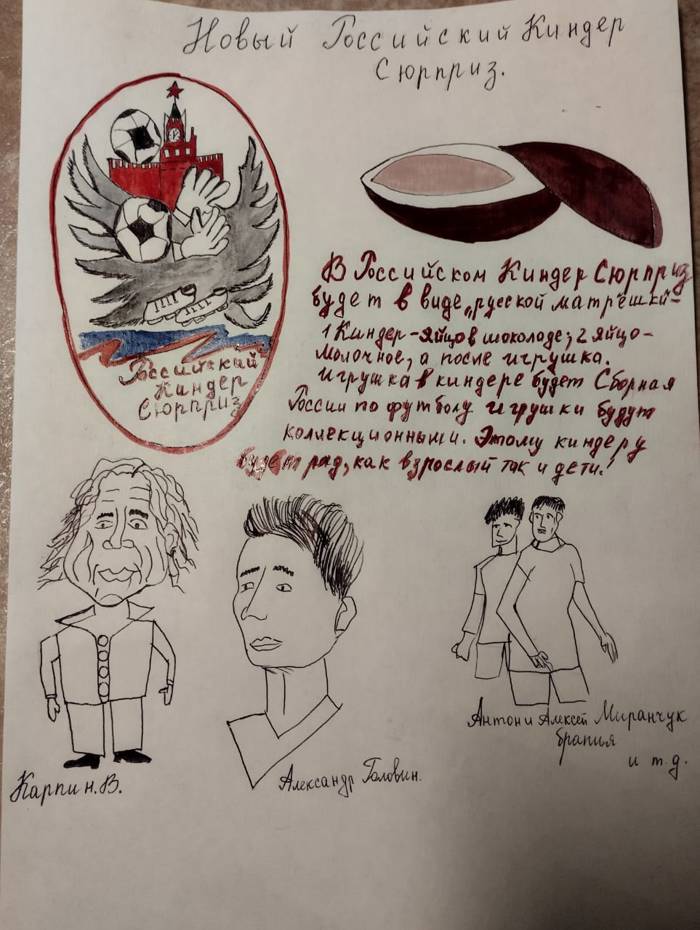 Новый Российский Киндер
Сюрприз.
Российский
Киндер
Сюрприз
В Российском Киндер Сюрприз
будет в виде „русской матрёшки"-
1 Киндер-яйцо в шоколаде; 2 яйцо-
молочное, а после игрушка.
Игрушка в киндере будет Сборная
России по футболу игрушки будут
коллекционными. Этому киндеру
будет рад, как взрослый так и дети!
Карпин.В.
Александр Головин.
Антон и Алексей Миранчук
братия
и т.д.